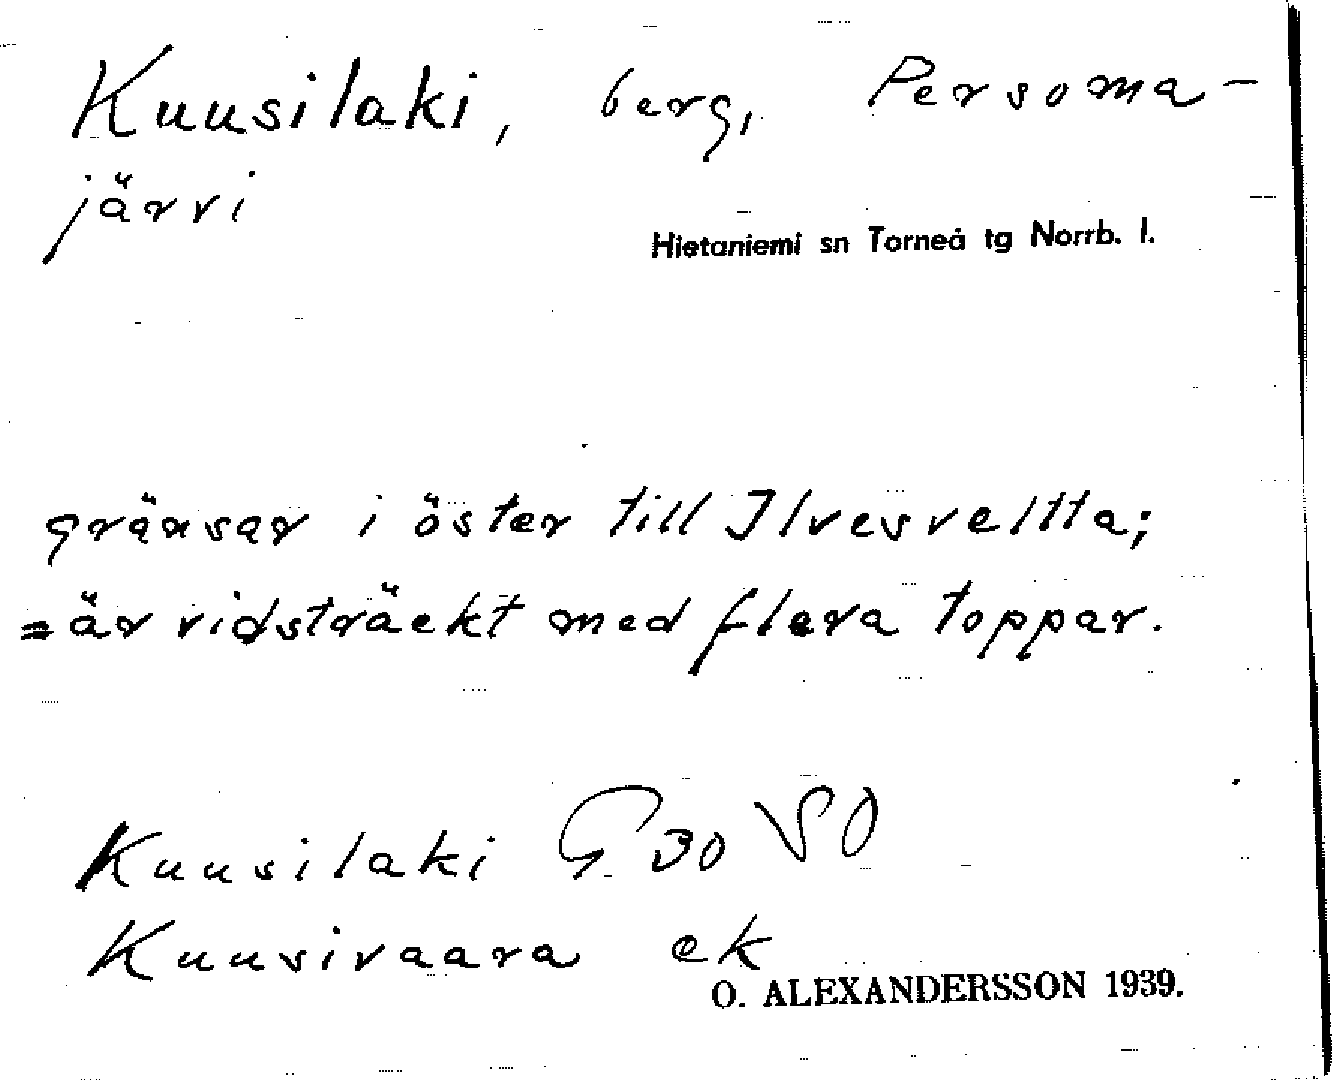 Kuusilaki, berg, Persoma-
järvi
Hietaniemi sn Torneå tg Norrb. l.
gränsar i öster till Ilvesveltta;
=är vidsträckt med flera toppar.
Kuusilaki G 30 SO
Kuusivaara ek
O. ALEXANDERSSON 1939.